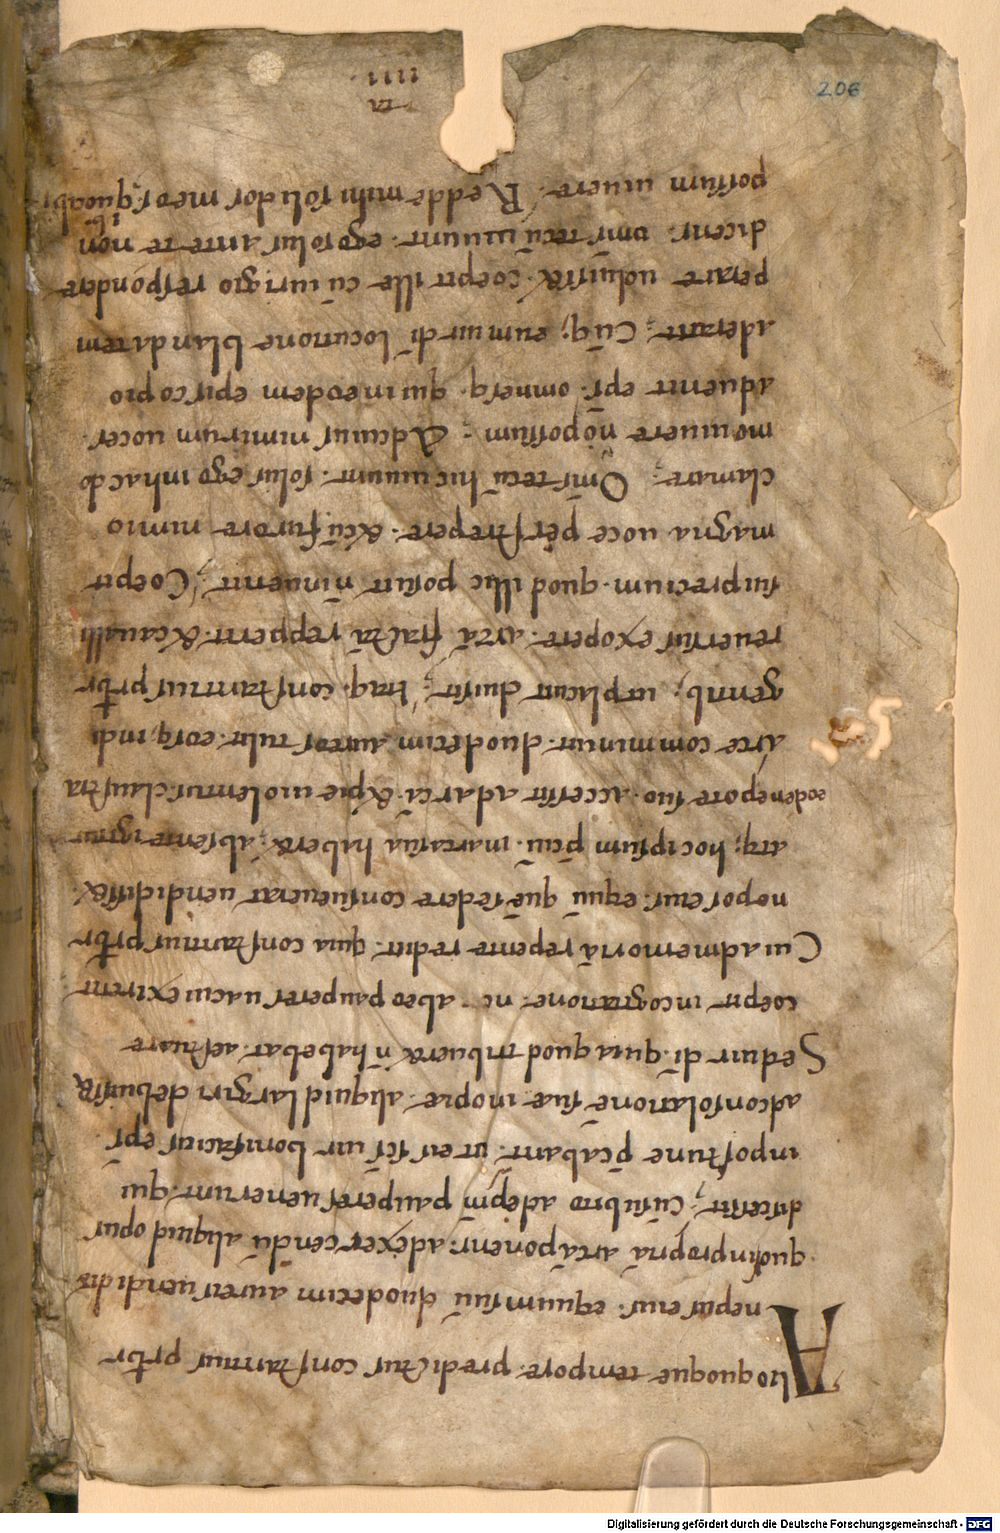 206
Alio quoque tempore. predictus constantius prbr
nepus eius. equum suū duodecim aureis uendidit
quos in propriā arcā ponens. ad exercendū aliquid opus
discessit; Cū subito ad ep̄m pauperes uenerunt. qui
inportune p̄cabant. ut eis sc̄s uir bonifacius ep̄s
ad consolatione suæ inopiæ. aliquid largiri debuiss&
Sed uir dī. quia quod tribuer& n̄ habebat. aestuare
coepit in cogitatione. ne ab eo pauperes uacui exirent
Cui ad memoriā repente rediit. quia constantius prbr
nepos eius. equū quē sedere consueuerat uendidiss&.
atq; hoc ipsum p̄ciū. in arca sua haber&. absente igitur
eodē nepote suo. accessit ad arcā. & pie uiolentus. claustra
arce comminuit. duodecim aureos tulit. eosq; indi
gentib; ut placuit diuisit; Itaq; constantius prbr
reuersus ex opere. arcā fractā repperit. & caualli
sui precium. quod illic posuit n̄ inuenit; Coepit
magna uoce perstrepere. & cū furore nimio
clamare; Om̄s tecū hic uiuunt. solus ego in hac do
mo uiuere nō possum; Ad cuius nimirum uoces.
aduenit ep̄s. omnesq. qui in eodem episcopio
aderant; Cūq; eum uir dī locutione blanda tem
perare uoluiss&. coepit ille cū iurgio respondere
dicens. om̄s tecū uiuunt. ego solus ante te non
possum uiuere. Redde mihi solidos meos.
Digitalisierung gefördert durch die Deutsche Forschungsgemeinschaft - DFG